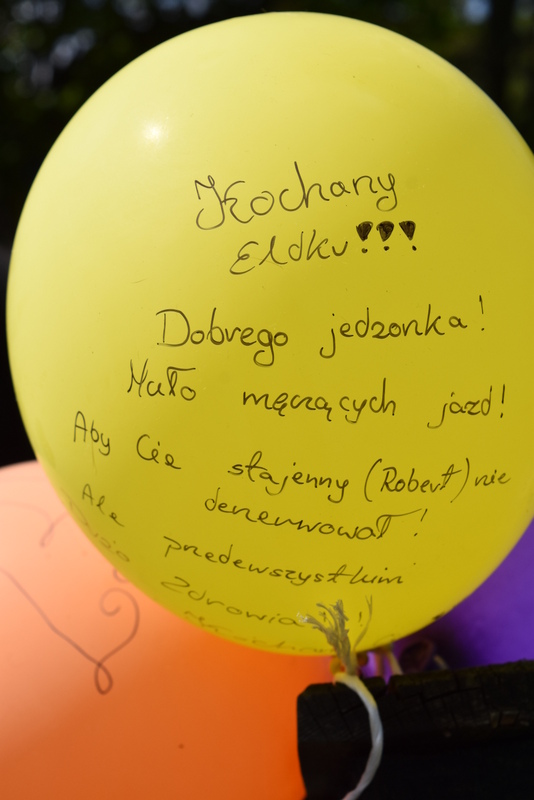 Kochany
Eldku!!!
Dobrego jedzonka!
Mało męczących jazd!
Aby Cie stajenny (Robert) nie
denerwował!
Ale przedewszystkim
Dużo Zdrowia!!